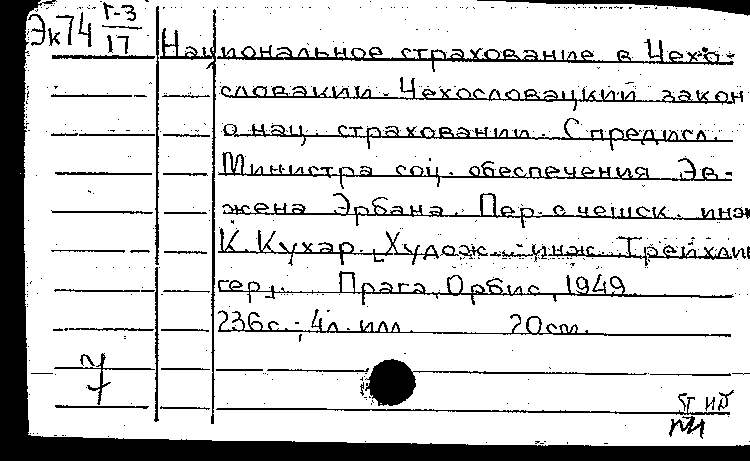 Эк74 Г-3
17
Национальное страхование в Чехо-
словакии. Чехословацкий закон
о нац. страховании. С предисл.
Министра соц. обеспечения Эв-
жена Эрбана. Пер. с чешск. инж
К. Кухар. [Худож.: инж. Трейхлин
гер]. Прага, Орбис, 1949
236 с.; 4л. илл. 20 см.